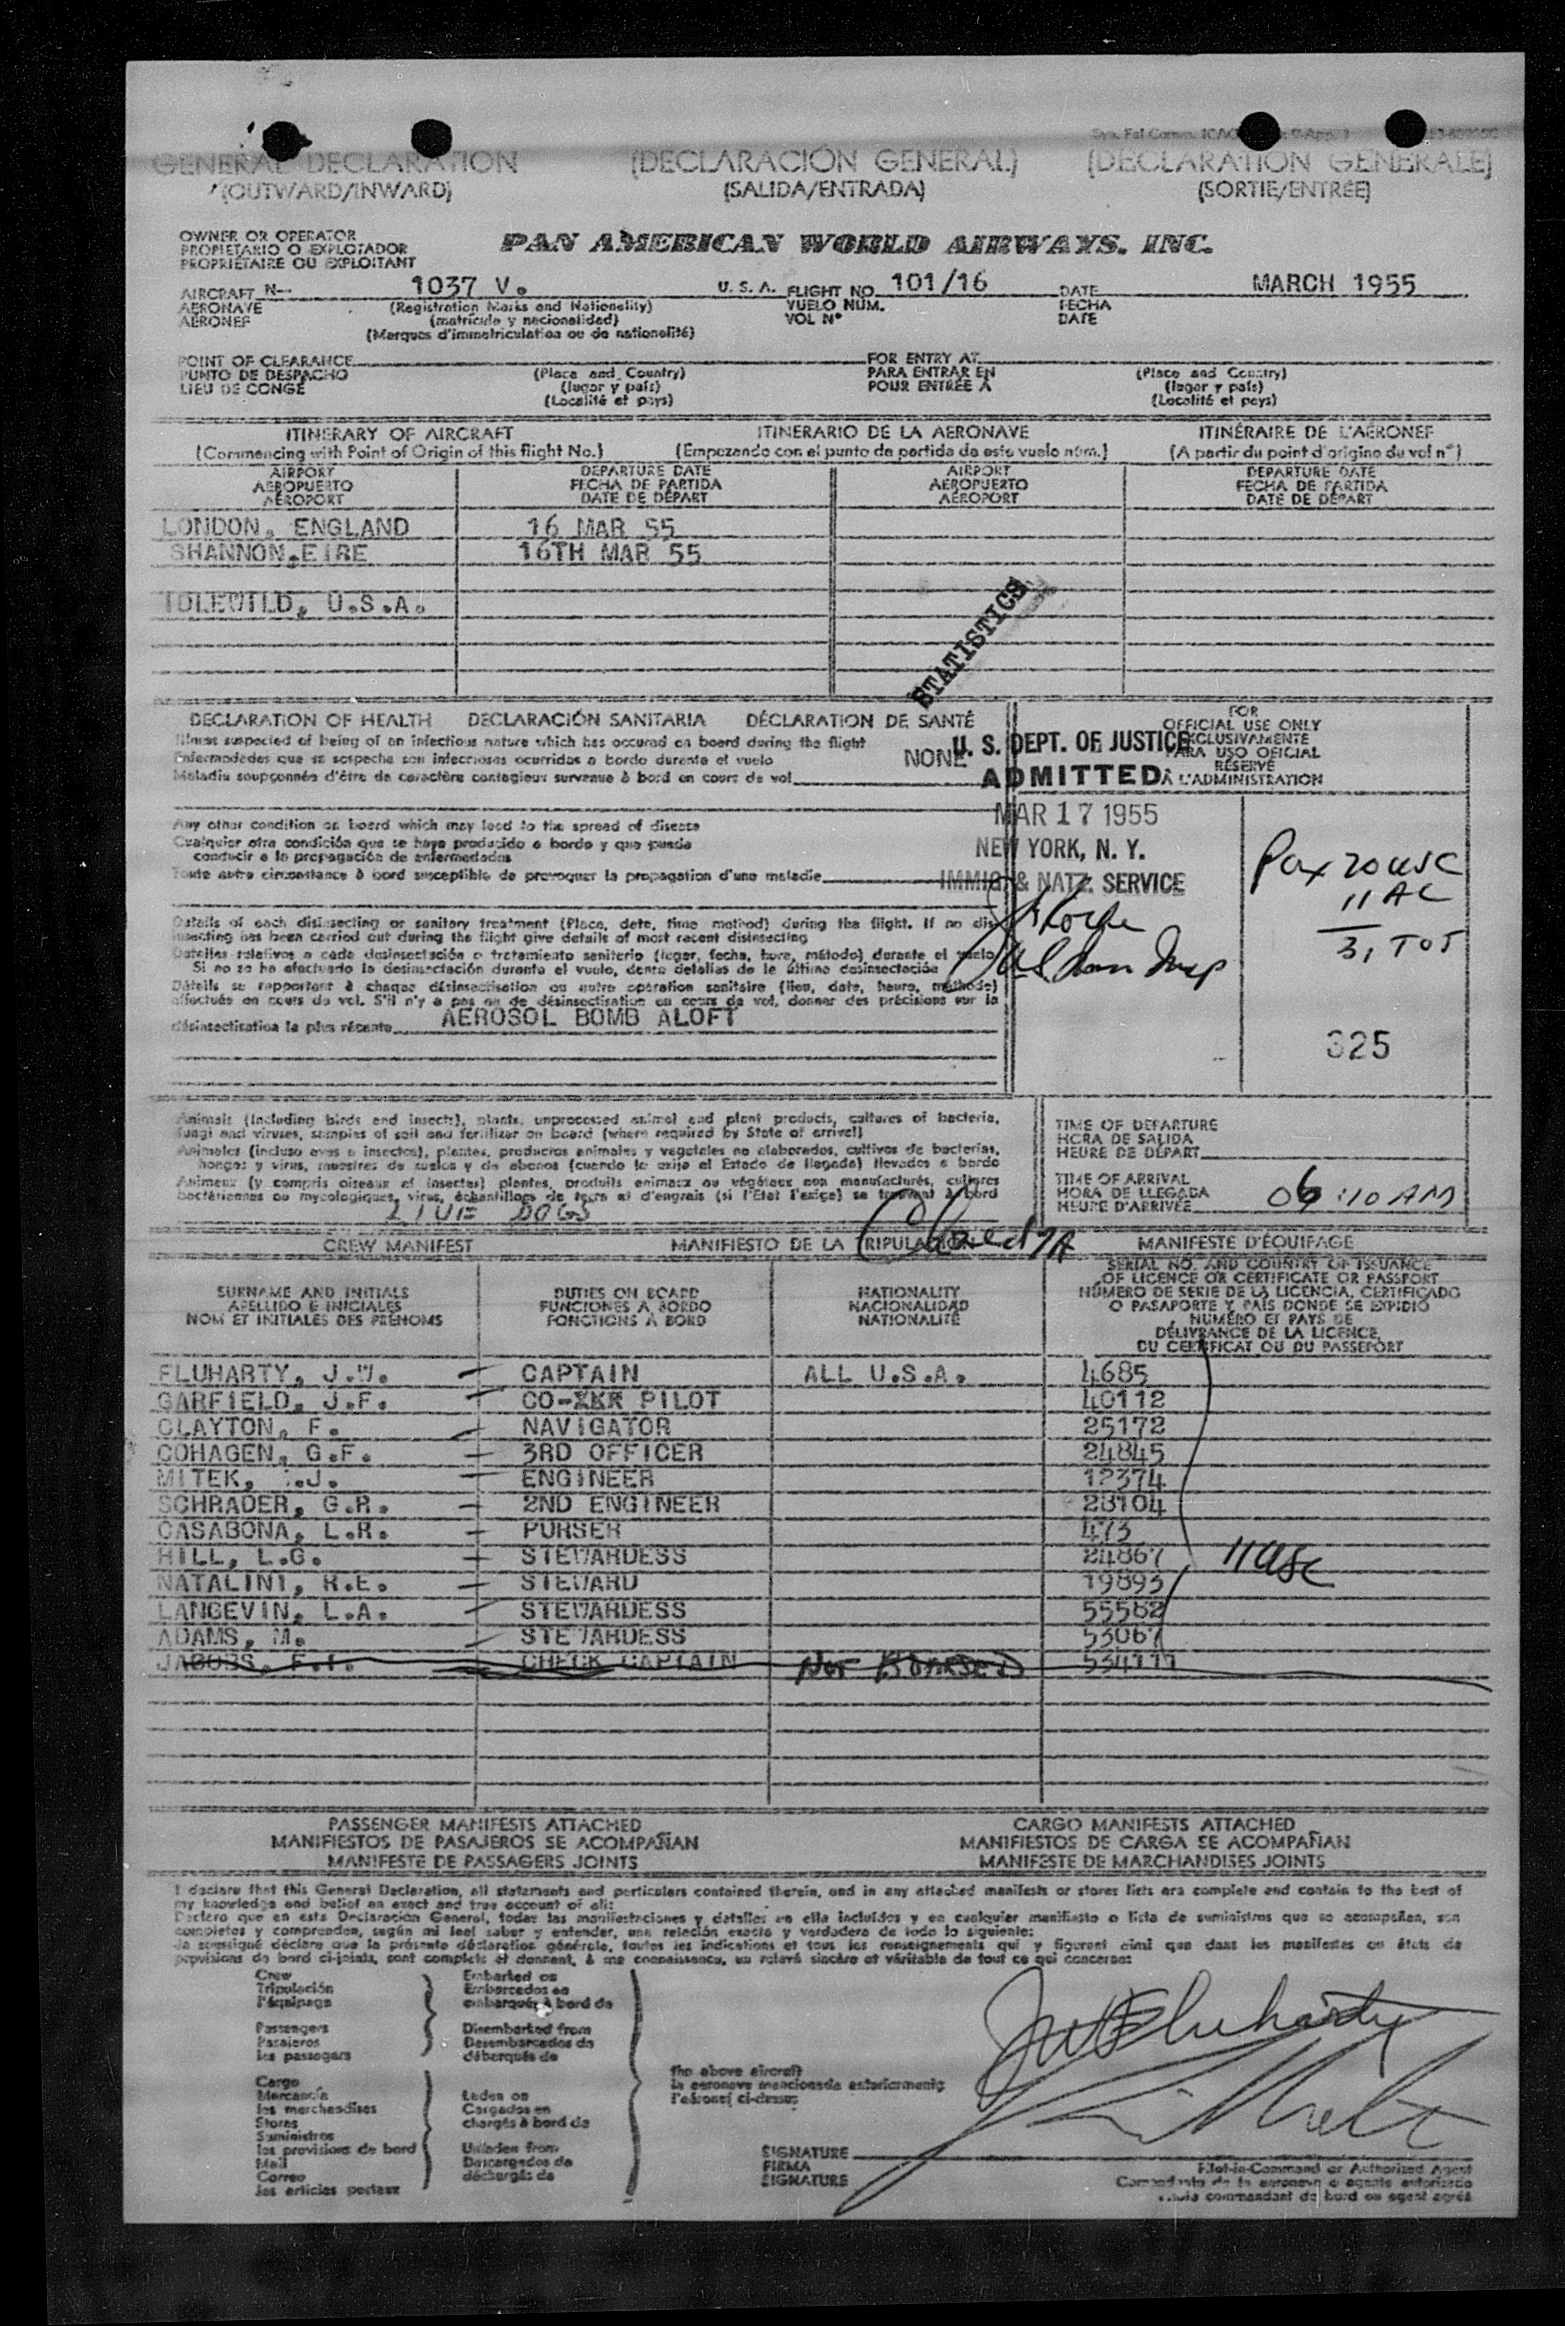 GENERAL DECLARATION (DECLARACIÓN GENERAL) (DÉCLARATION GÉNÉRALE)
(OUTWARD/INWARD) (SALIDA/ENTRADA) (SORTIE/ENTRÉE)
OWNER OR OPERATOR
PROPIETARIO O EXPLOTADOR
PROPRIÉTAIRE OU EXPLOITANT
PAN AMERICAN WORLD AIRWAYS, INC.
AIRCRAFT N- 1037 V. U. S. A. FLIGHT NO. 101/16 DATE MARCH 1955
AERONAVE (Registration Marks and Nationality) VUELO NÚM. FECHA
AÉRONEF (matrícula y nacionalidad) VOL N° DATE
(Marques d'immatriculation ou de nationalité)
POINT OF CLEARANCE FOR ENTRY AT
PUNTO DE DESPACHO (Place and Country) PARA ENTRAR EN (Place and Country)
LIEU DE CONGÉ (lugar y país) POUR ENTRÉE A (lugar y país)
(Localité et pays) (Localité et pays)
ITINERARY OF AIRCRAFT ITINERARIO DE LA AERONAVE ITINÉRAIRE DE L'AÉRONEF
(Commencing with Point of Origin of this flight No.) (Empezando con el punto de partida de este vuelo núm.) (A partir du point d'origine du vol n°)
AIRPORT DEPARTURE DATE AIRPORT DEPARTURE DATE
AEROPUERTO FECHA DE PARTIDA AEROPUERTO FECHA DE PARTIDA
AÉROPORT DATE DE DÉPART AÉROPORT DATE DE DÉPART
LONDON, ENGLAND 16 MAR 55
SHANNON, EIRE 16TH MAR 55
IDLEWILD, U.S.A.
STATISTICS
DECLARATION OF HEALTH DECLARACIÓN SANITARIA DÉCLARATION DE SANTÉ
Illness suspected of being of an infectious nature which has occured on board during the flight
Enfermedades que se sospecha son infecciosas ocurridas a bordo durante el vuelo
Maladie soupçonnés d'être de caractère contagieux survenue à bord en cours de vol NONE
FOR
OFFICIAL USE ONLY
EXCLUSIVAMENTE
PARA USO OFICIAL
RÉSERVÉ
À L'ADMINISTRATION
U. S. DEPT. OF JUSTICE
ADMITTED
MAR 17 1955
NEW YORK, N. Y.
IMMIG. & NATZ. SERVICE
Pax 20 USC
11 AC
31 TOT
325
Any other condition on board which may lead to the spread of disease
Cualquier otra condición que se haya producido a bordo y que pueda
conducir a la propagación de enfermedades
Toute autre circonstance à bord susceptible de provoquer la propagation d'une maladie
Details of each disinsecting or sanitary treatment (Place, date, time method) during the flight. If no dis-
insecting has been carried out during the flight give details of most recent disinsecting
Detalles relativos a cada desinsectación o tratamiento sanitario (lugar, fecha, hora, método) durante el vuelo
Si no se ha efectuado la desinsectación durante el vuelo, dense detalles de la última desinsectación
Détails se rapportant à chaque désinsectisation ou autre opération sanitaire (lieu, date, heure, méthode)
effectués en cours de vol. S'il n'y a pas eu de désinsectisation en cours de vol, donner des précisions sur la
désinsectisation la plus récente AEROSOL BOMB ALOFT
Animals (including birds and insects), plants, unprocessed animal and plant products, cultures of bacteria,
fungi and viruses, samples of soil and fertilizer on board (where required by State of arrival)
Animales (incluso aves e insectos), plantas, productos animales y vegetales no elaborados, cultivos de bacterias,
hongos y virus, muestras de suelos y de abonos (cuando lo exija el Estado de llegada) llevados a bordo
Animaux (y compris oiseaux et insectes) plantes, produits animaux ou végétaux non manufacturés, cultures
bactériennes ou mycologiques, virus, échantillons de terre et d'engrais (si l'État l'exige) se trouvant à bord
LIVE DOGS
TIME OF DEPARTURE
HORA DE SALIDA
HEURE DE DÉPART
TIME OF ARRIVAL
HORA DE LLEGADA 06:10 AM
HEURE D'ARRIVÉE
CREW MANIFEST MANIFIESTO DE LA TRIPULACIÓN MANIFESTE D'ÉQUIPAGE
SURNAME AND INITIALS DUTIES ON BOARD NATIONALITY SERIAL NO. AND COUNTRY OF ISSUANCE
APELLIDO E INICIALES FUNCIONES A BORDO NACIONALIDAD OF LICENCE OR CERTIFICATE OR PASSPORT
NOM ET INITIALES DES PRÉNOMS FONCTIONS À BORD NATIONALITÉ NÚMERO DE SERIE DE LA LICENCIA, CERTIFICADO
O PASAPORTE Y PAÍS DONDE SE EXPIDIÓ
NUMÉRO ET PAYS DE
DÉLIVRANCE DE LA LICENCE,
DU CERTIFICAT OU DU PASSEPORT
FLUHARTY, J.W. CAPTAIN ALL U.S.A. 4685
GARFIELD, J.F. CO-XXX PILOT 40112
CLAYTON, F. NAVIGATOR 25172
COHAGEN, G.F. 3RD OFFICER 24845
MITEK, .J. ENGINEER 12374
SCHRADER, G.R. 2ND ENGINEER 28104
CASABONA, L.R. PURSER 473
HILL, L.G. STEWARDESS 24867 11 USC
NATALINI, R.E. STEWARD 19893
LANGEVIN, L.A. STEWARDESS 55562
ADAMS, M. STEWARDESS 53067
JACOBS, F.I. CHECK CAPTAIN Not Boarded
PASSENGER MANIFESTS ATTACHED CARGO MANIFESTS ATTACHED
MANIFIESTOS DE PASAJEROS SE ACOMPAÑAN MANIFIESTOS DE CARGA SE ACOMPAÑAN
MANIFESTE DE PASSAGERS JOINTS MANIFESTE DE MARCHANDISES JOINTS
I declare that this General Declaration, all statements and particulars contained therein, and in any attached manifests or stores lists are complete and contain to the best of
my knowledge and belief an exact and true account of all:
Declaro que en esta Declaración General, todas las manifestaciones y detalles en ella incluídos y en cualquier manifiesto o lista de suministros que se acompañen, son
completos y comprenden, según mi leal saber y entender, una relación exacta y verdadera de todo lo siguiente:
Je soussigné déclare que la présente déclaration générale, toutes les indications et tous les renseignements qui y figurent ainsi que dans les manifestes ou états de
provisions de bord ci-joints, sont complets et donnent, à ma connaissance, un relevé sincère et véritable de tout ce qui concerne:
Crew Embarked on
Tripulación Embarcados en
l'équipage embarqués à bord de
Passengers Disembarked from
Pasajeros Desembarcados de
les passagers débarqués de
Cargo
Mercancía Laden on
les marchandises Cargados en
Stores chargés à bord de
Suministros
les provisions de bord Unladen from
Mail Descargados de
Correo déchargés de
les articles postaux
The above aircraft
la aeronave mencionada anteriormente
l'aéronef ci-dessus
J W Fluharty
SIGNATURE
FIRMA
SIGNATURE
Pilot-in-Command or Authorized Agent
Comandante de la aeronave o agente autorizado
Pilote commandant de bord ou agent agréé